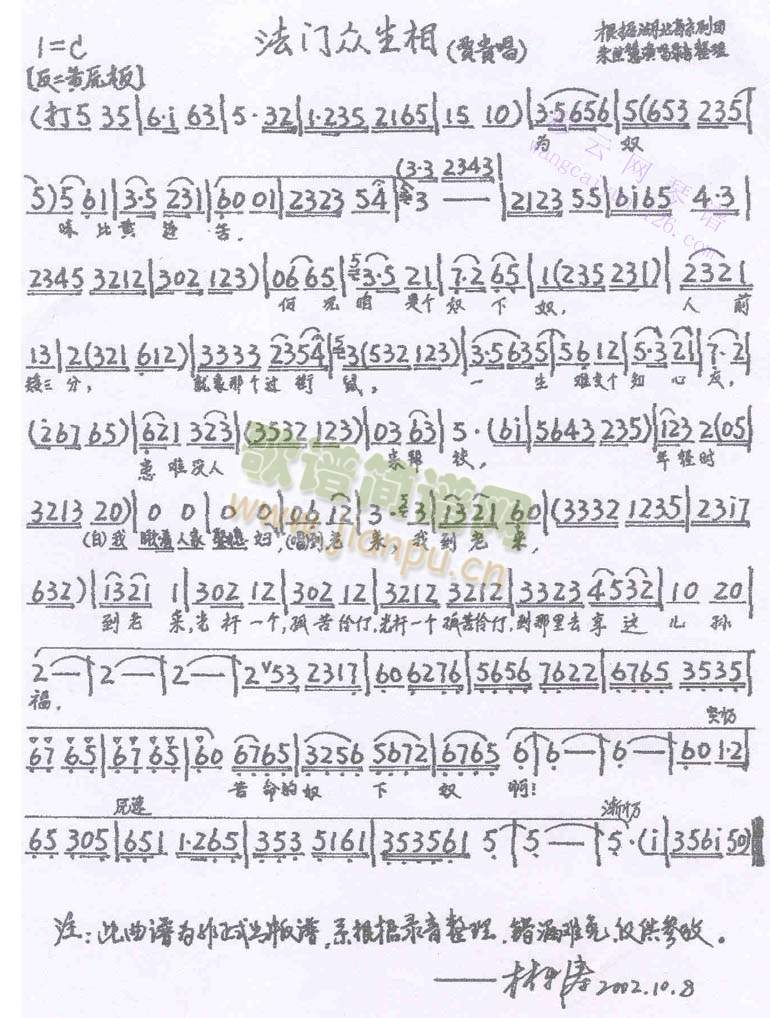 1=C 法门众生相 (贾贵唱) 根据湖北省京剧团
[反二黄原板] 朱世慧演唱录音整理
(打5 35|6·i 63|5·32|1·235 2165|15 10)|3·5656|5(653 235|
为 奴
5)5 61|3·5 231|60 01|2323 54|3 — |2123 55|6i65 4·3|
(3·3 2343|
味 比黄 连 苦。
2345 3212|302 123)|06 65|3·5 21|7·2 65|1(235 231)|2321
但凡咱 是个 奴 下 奴, 人 前
13|2(321 612)|3333 2354|3(532 123)|3·5635|5 6 12|5·3 21|7·2|
矮三分, 就象那个过街 鼠, 一 生 难交个 知 心 友,
(2676 65)|621 323|(3532 123)|03 63|5·(6i|5643 235)|123 2(05|
患难没人 来帮 扶, 年轻时
3213 20)|0 0|0 0|06 12|3·3|1321 60|(3332 1235|2317
(白)我 妇,(唱)到老 来,我到老 来,
632)|1321 1|302 12|302 12|3212 3212|3323 4532|10 20|
到老 来,光杆一个,孤苦伶仃,光杆一个孤苦伶仃,到那里去享这 儿 孙
2—|2—|2—|2 53 2317|60 6276|5656 7622|6765 3535|
福。
突忉
67 65|67 65|60 6765|3256 5672|6765 6|6—|6—|60 1·2|
苦命的奴 下 奴 啊!
原速 渐忉
65 305|651 1·265|353 5161|353561 5|5—|5·(i|356i 50)‖
注:此曲谱为非正式出版谱,系根据录音整理,错漏难免,仅供参改。
2002.10.8
歌谱简谱网
www.jianpu.cn